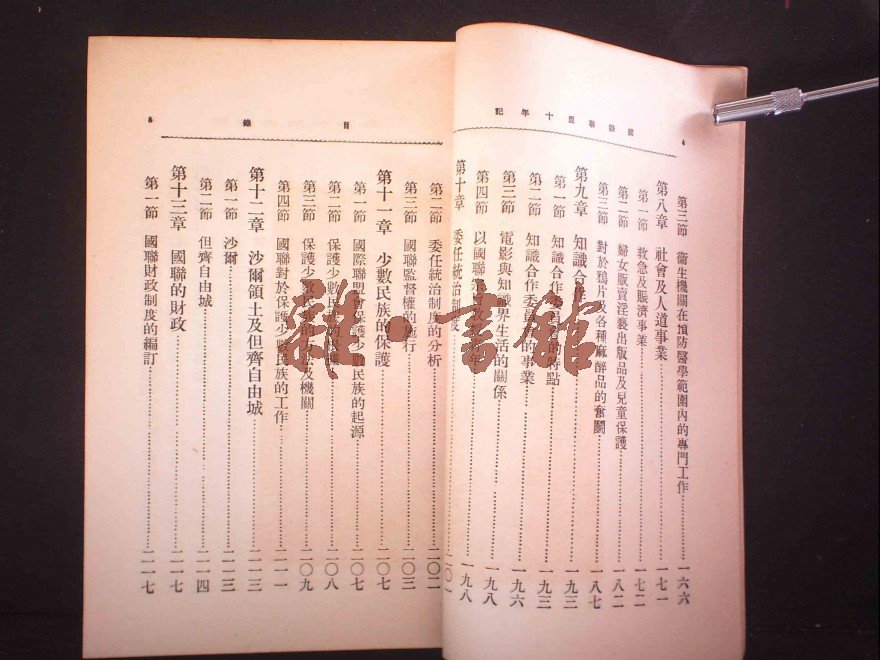 國際聯盟十年記
4
第三節 衛生機關在預防醫學範圍內的專門工作……一六六
第八章 社會及人道事業……一七一
第一節 救急及賑濟事業……一七二
第二節 婦女販賣淫褻出版品及兒童保護……一八二
第三節 對於鴉片及各種麻醉品的奮鬭……一八七
第九章 知識合作……一九三
第一節 知識合作委員會的特點……一九三
第二節 知識合作委員會的事業……一九六
第三節 電影與知識界生活的關係……一九八
第四節 以國聯……一九八
第十章 委任統治制度……二〇一
目錄
5
第二節 委任統治制度的分析……二〇二
第三節 國聯監督權的施行……二〇三
第十一章 少數民族的保護……二〇七
第一節 國際聯盟會保護少數民族的起源……二〇七
第二節 保護少數民族的……二〇八
第三節 保護少數民族的方法及機關……二〇九
第四節 國聯對於保護少數民族的工作……二一一
第十二章 沙爾領土及但齊自由城……二一三
第一節 沙爾……二一三
第二節 但齊自由城……二一四
第十三章 國聯的財政……二一七
第一節 國聯財政制度的編訂……二一七
雜·書館